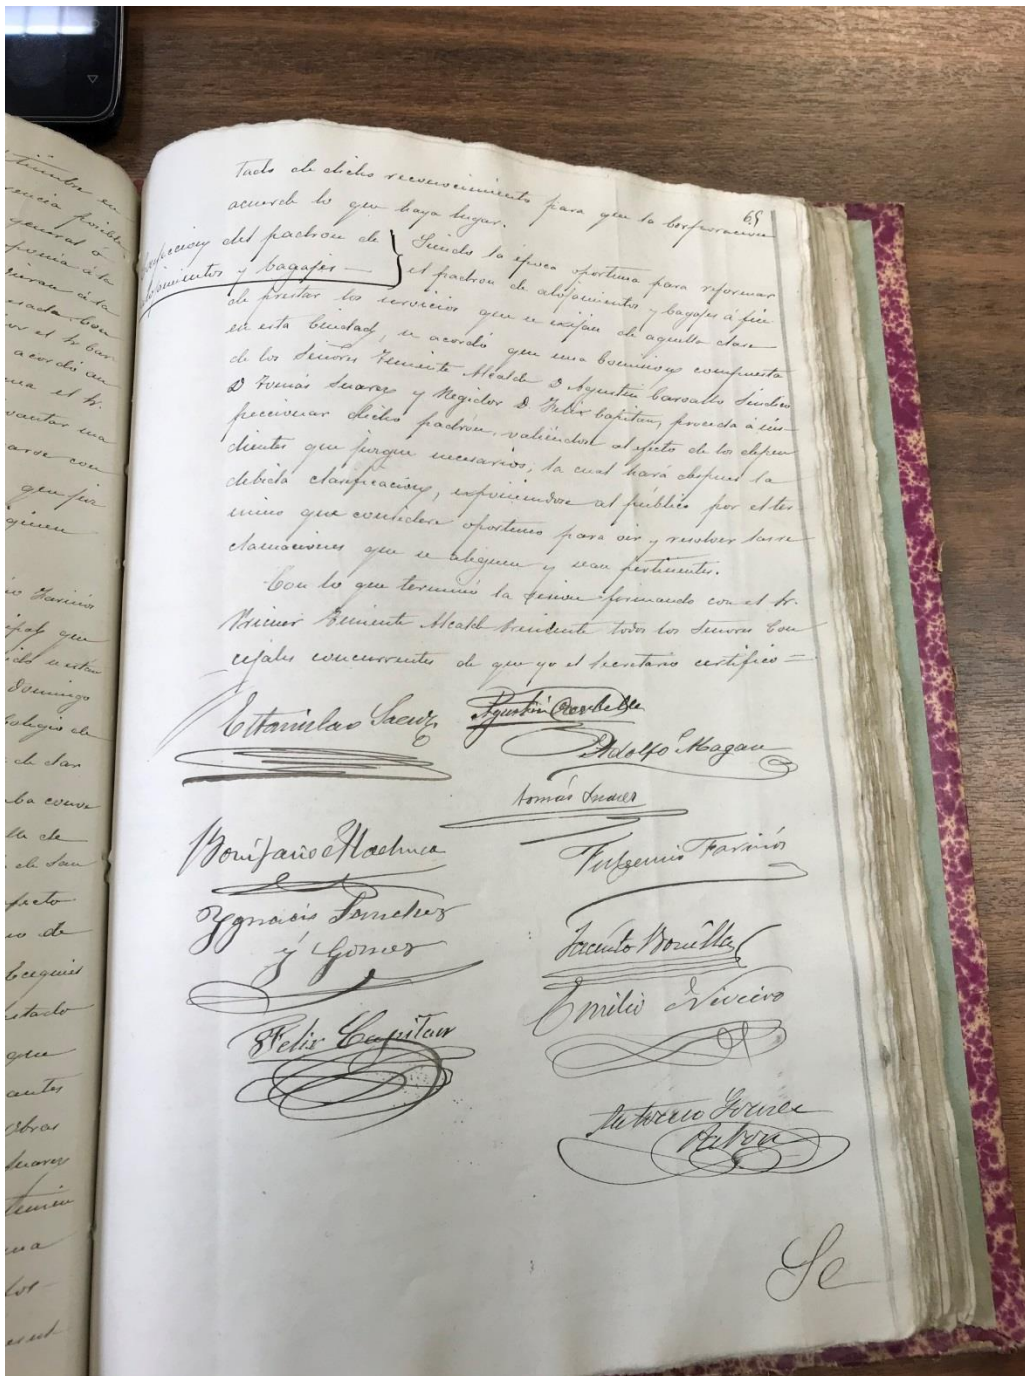 tado de dicho reconocimiento para que la Corporacion
acuerde lo que haya lugar.
65
del padron de
alojamientos y bagajes—
Siendo la época oportuna para reformar
el padron de alojamientos y bagajes á fin
de prestar los servicios que se exijan de aquella clase
en esta Ciudad, se acordó que una Comision compuesta
de los Señores Teniente Alcalde D Agustin Carballo Sindico
D Tomás Suarez y Regidor D Felix Capitan, proceda a ins-
peccionar dicho padrón, valiendose al efecto de los depen
dientes que juzgue necesarios; la cual hará despues la
debida clasificacion, exponiendose al público por el ter
mino que considere oportuno para oir y resolver las re
clamaciones que se aleguen y sean pertinentes.
Con lo que terminó la sesion firmando con el Sr.
Primer Teniente Alcalde Presidente todos los Señores Con
cejales concurrentes de que yo el Secretario certifico=
Estanislao Saenz
Agustin Carballo
Adolfo Magan
Tomás Suarez
Bonifacio Machuca
Fulgencio Fariños
Ygnacio Sanchez
y Gomez
Jacinto Bonilla
Emilio Niveiro
Felix Capitan
Antonio
Pabon
Se
tiembre en
posible
general ó
á la
á la
acordó
el Sr.
con
que
que
Domingo
Colegio de
de
de San
de
Ezequiel
que
antes
obras
Suarez